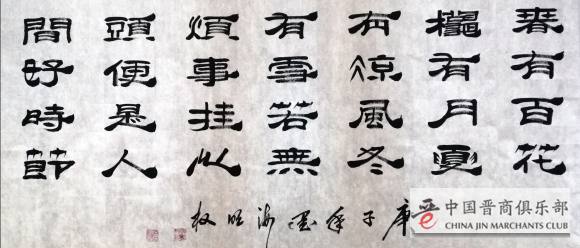 春有百花
龝有月夏
有凉風冬
有雪若無
煩事挂心
頭便是人
間好時節
庚子年
中国晋商俱乐部
CHINA JIN MARCHANTS CLUB